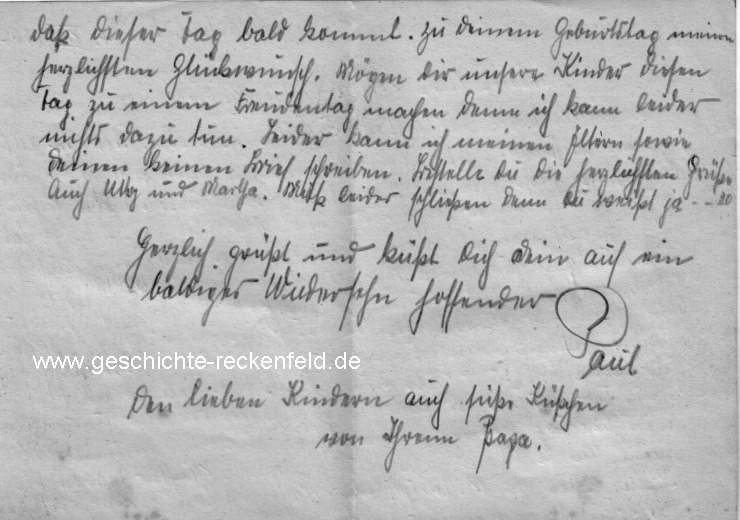 daß dieser Tag bald kommt. Zu deinem Geburtstag meinen
herzlichsten Glückwunsch. Mögen dir unsere Kinder diesen
Tag zu einem Freudentag machen denn ich kann leider
nichts dazu tun. Leider kann ich meinen Eltern sowie
deinen keinen Brief schreiben. Bestelle du die herzlichsten Grüße
Auch und Martha. Muß leider schließen denn du weißt ja - - 20
Herzlich grüßt und küßt dich dein auf ein
baldiges Wiedersehn hoffender
Paul
www.geschichte-reckenfeld.de
Den lieben Kindern auch süße Küßchen
von Ihrem Papa.